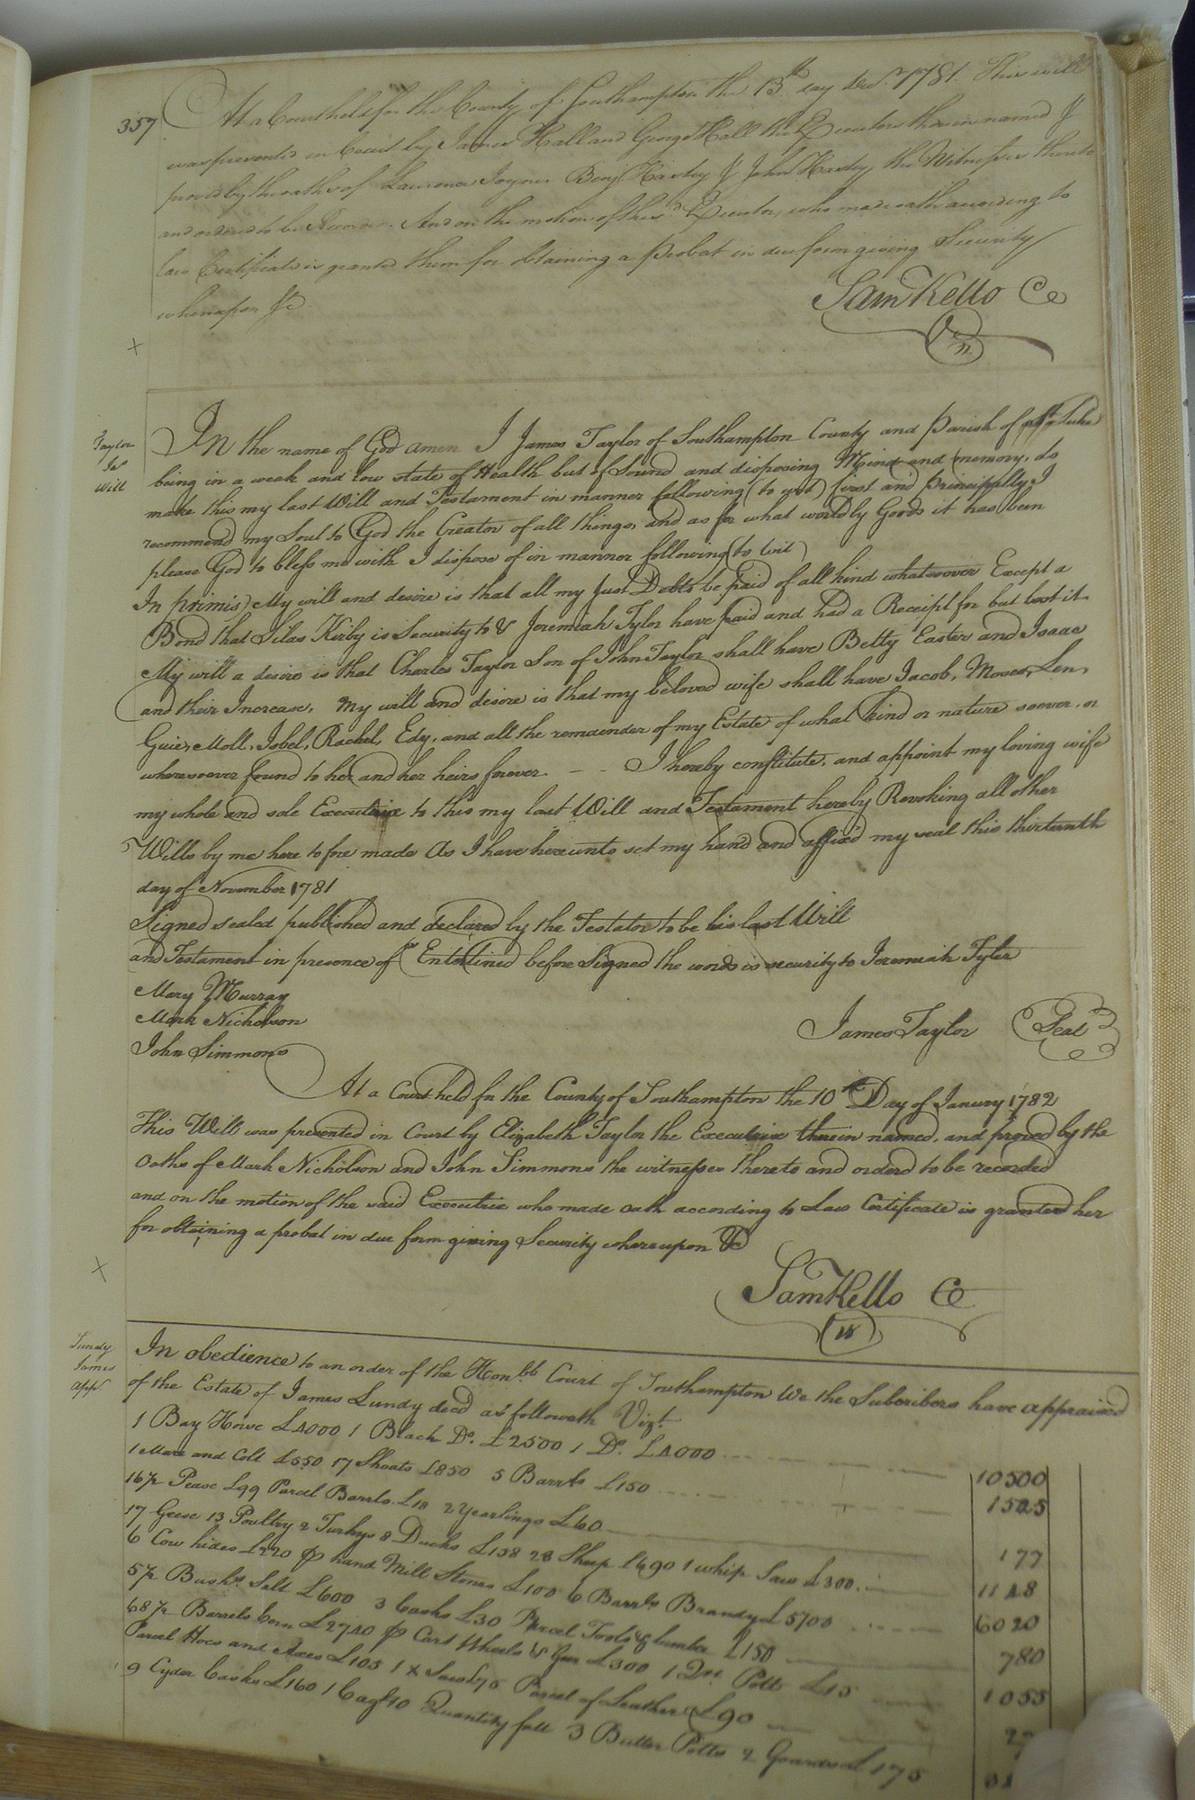 357
At a Court held for the County of Southampton the 13th day Decr. 1781. This will
was presented in Court by James Hall and George Hall the Executors therein named &
proved by the oaths of Lawrence Joyner Benj Harty & John Harty the Witnesses thereto
and ordered to be Recorded. And on the motion of the sd Executors, who made oath according to
law Certificate is granted them for obtaining a probat in due form giving Security
whereupon &c
Sam Kello Ce
Taylor
Jas
Will
In the name of God amen I James Taylor of Southampton County and Parish of St Luke
being in a weak and low state of Health but of Sound and disposing Mind and memory, do
make this my last Will and Testament in manner following (to wit) first and principally I
recommend my Soul to God the Creator of all things, and as for what worldly Goods it has been
please God to bless me with I dispose of in manner following (to wit)
In primis) My will and desire is that all my Just Debts be paid of all kind whatsoever Except a
Bond that Silas Kirby is Security to & Jeremiah Tylor have paid and had a Receipt for but lost it
My will a desire is that Charles Taylor Son of John Taylor shall have Betty Easter and Isaac
and their Increase, My will and desire is that my beloved wife shall have Jacob, Moses, Len,
Guie, Moll, Isbel, Rachel, Edy, and all the remainder of my Estate of what kind or nature soever, or
wheresoever found to her and her heirs forever - - I hereby constitute, and appoint my loving wife
my whole and sole Executrix to this my last Will and Testament hereby Revoking all other
Wills by me here to fore made As I have hereunto set my hand and affixed my seal this thirteenth
day of November 1781
Signed sealed published and declared by the Testator to be his last Will
and Testament in presence of Enterlined before Signed the words is security to Jeremiah Tyler
Mary Murray
Mark Nicholson
John Simmons
James Taylor Seal
At a Court held for the County of Southampton the 10th Day of Janury 1782
This Will was presented in Court by Elizabeth Taylor the Executrix therein named, and proved by the
Oaths of Mark Nicholson and John Simmons the witnesses thereto and orderd to be recorded
and on the motion of the said Executrix who made oath according to Law Certificate is granted her
for obtaining a probat in due form giving Security whereupon &c
Sam Kello Ce
Lundy
James
appt
In obedience to an order of the Honble Court of Southampton We the Subcribers have appraised
of the Estate of James Lundy decd as followeth Vizt.
1 Bay Horse £4000 1 Black Do. £2500 1 Do. £4000 10500
1 Mare and Colt £550 17 Shoats £850 5 Barrls £150 1525
16½ Pease £99 Parcel Barrls £18 2 Yearlings £60 177
17 Geese 13 Poultry 2 Turkys 8 Ducks £158 28 Sheep £690 1 whip Saw £300. 1148
6 Cow hides £220 pr hand Mill Stones £100 6 Barrls Brandy £5700 6020
5½ Bushs Salt £600 3 Casks £30 Parcel Tools & lumber £150 780
68½ Barrels Corn £2740 pr Cart Wheels & Gear £300 1 Do. Potts £15 1055
Parcel Hoes and Axes £105 1 X Saw £75 Parcel of Leather £90
9 Cyder Casks £160 1 Cagf 10 Quantity fatt 3 Butter Potts 2 Gourds £175